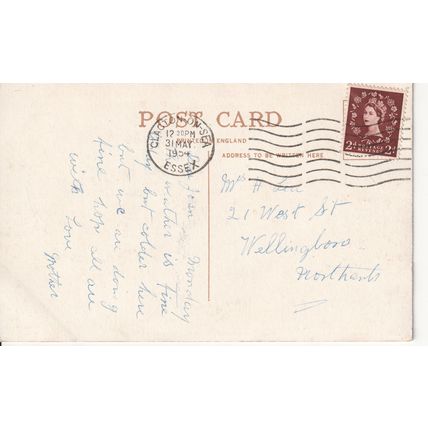 POST CARD
PRINTED ENGLAND
ADDRESS TO BE WRITTEN HERE
CLACTON-ON-SEA
12 30PM
31 MAY
195
ESSEX
POSTAGE REVENUE
2 D 2 D
Monday
Dear Joan
weather is fine
but colder here
but we are doing
fine hope all are
with love
Mother
Mrs H
21 West St
Wellingboro
Northants